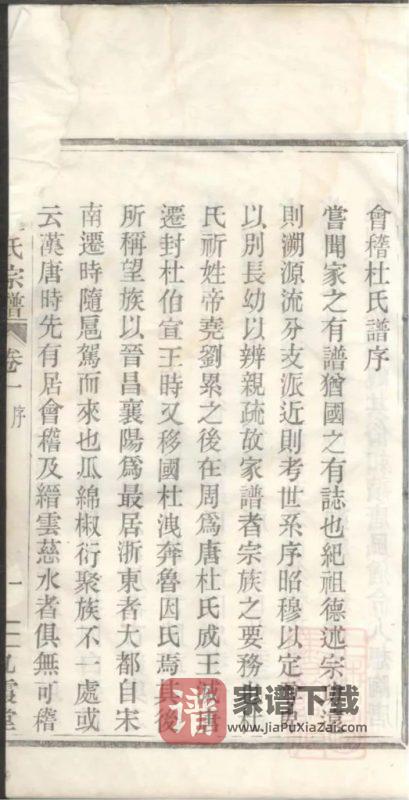 會稽杜氏譜序
嘗聞家之有譜猶國之有誌也紀祖德述宗遠
則溯源流分支派近則考世系序昭穆以定
以別長幼以辨親疏故家譜者宗族之要務也杜
氏祈姓帝堯劉累之後在周爲唐杜氏成王滅唐
遷封杜伯宣王時又移國杜洩奔魯因氏焉其後
所稱望族以晉昌襄陽爲最居浙東者大都自宋
南遷時隨扈駕而來也瓜綿椒衍聚族不一處或
云漢唐時先有居會稽及縉雲慈水者俱無可稽
氏宗譜 卷一 序 一 九霞堂
譜 家谱下载
www.JiaPuXiaZai.com